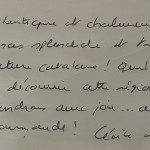 thentique et chaleureux
nas splendide et
ture catalane ! Quel
découvrir cette région
endrons avec joie... a
ourmande !
Cécile